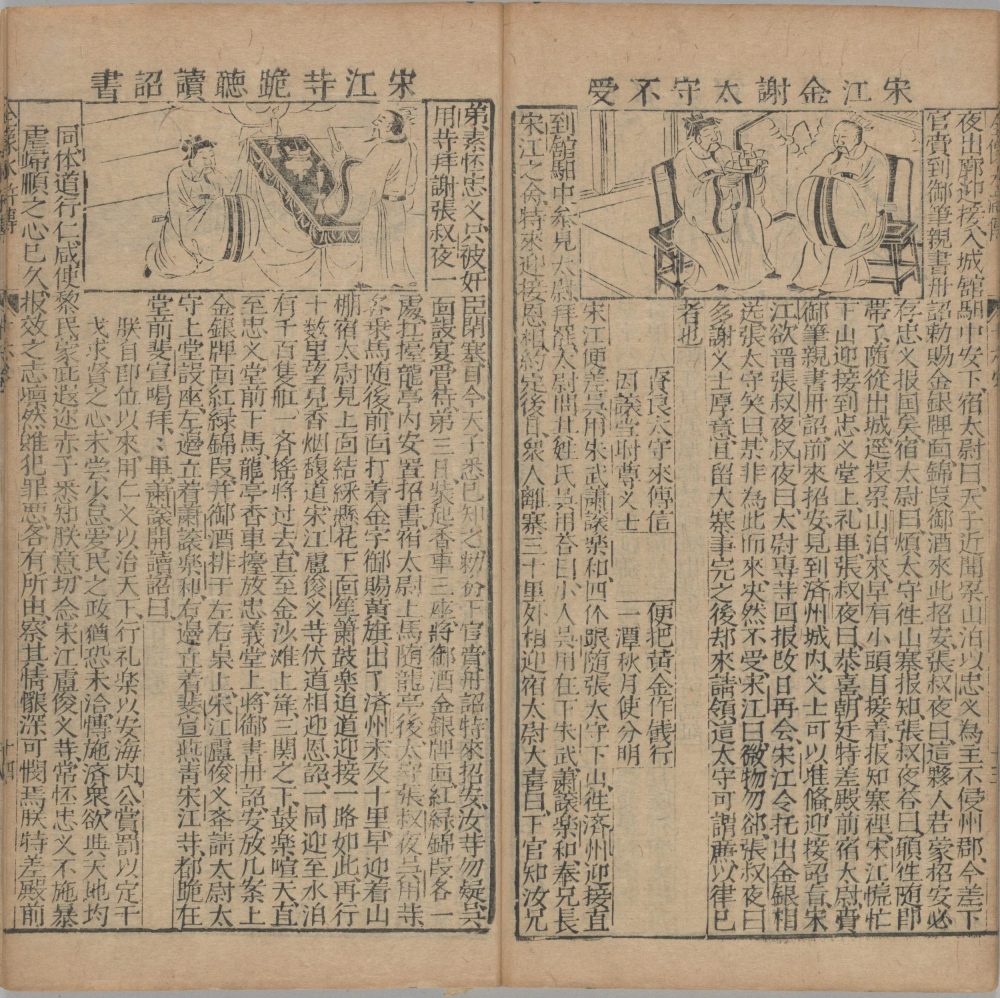 宋江金謝太守不受
夜出郭迎接入城館馹中安下宿太尉曰天子近聞梁山泊以忠义為主不侵州郡今差下
官賫到御筆親書丹詔勅賜金銀牌面錦段御酒來此招安張叔夜曰這夥人若蒙招安必
存忠义报国矣宿太尉曰煩太守徃山寨报知張叔夜答曰頋徃随即
帶了随從出城逕投梁山泊來早有小頭目接着报知寨裡宋江慌忙
下山迎接到忠义堂上礼畢張叔夜曰恭喜朝廷特差殿前宿太尉賫
御筆親書丹詔前來招安見到済州城內义士可以准俻迎接詔旨宋
江欲畱張叔夜叔夜曰太尉專等回报改日再会宋江令托出金銀相
送張太守笑曰某非為此而來央然不受宋江曰微物勿郤張叔夜曰
多謝义士厚意宜留大寨事完之後却來請領這太守可謂廉以律已
者也
良太守來傳信 便把黃金作餞行
因議當 尊义士 一潭秋月使分明
宋江便差吳用朱武蕭讓樂和四 跟随張太守下山徃済州迎接直
到館馹中叅見太尉拜罷太尉問其姓氏吳用荅曰小人吳用在下朱武蕭讓樂和奉兄長
宋江之命特來迎接恩相約定後日衆人離寨三十里外相迎宿太尉大喜曰下官知汝兄
宋江等跪聽讀詔書
弟素怀忠义只被奸臣閉塞目今天子悉已知之勑命下官賫丹詔特來招安汝等勿疑吳
用等拜謝張叔夜一面設宴管待第三日裝起香車三座將御酒金銀牌面紅綠錦段各一
處扛擡龍亭內安置招書宿太尉上馬随龍亭後太守張叔夜吳用等
各乗馬随後前面打着金字御賜黃旗出了済州未及十里早迎着山
棚宿太尉見上面結綵懸花下面笙簫鼓樂迫道迎接一路如此再行
十数里望見香烟馥道宋江盧俊义等伏道相迎恩詔一同迎至水泊
有千百隻舡一斉搖將过去直至金沙滩上岸三関之下鼓樂喧天直
至忠义堂前下馬龍亭香車擡放忠義堂上將御書丹詔安放几案上
金銀牌面紅緑錦段并御酒排于左右桌上宋江盧俊义斉請太尉太
守上堂設座左邊立着蕭讓樂和右邊立着裴宣燕青宋江等都跪在
堂前裴宣喝拜〻畢蕭讓開讀詔曰
朕自即位以來用仁义以治天下行礼樂以安海內公賞罰以定干
戈求賢之心未尝少怠爱民之政猶恐未洽博施済衆欲与天地均
同体道行仁咸使黎民蒙庇遐迩赤子悉知朕意切念宋江盧俊义等常怀忠义不施暴
虐歸順之心已久报效之志凛然雖犯罪恶各有所由察其情懇深可憫焉朕特差殿前